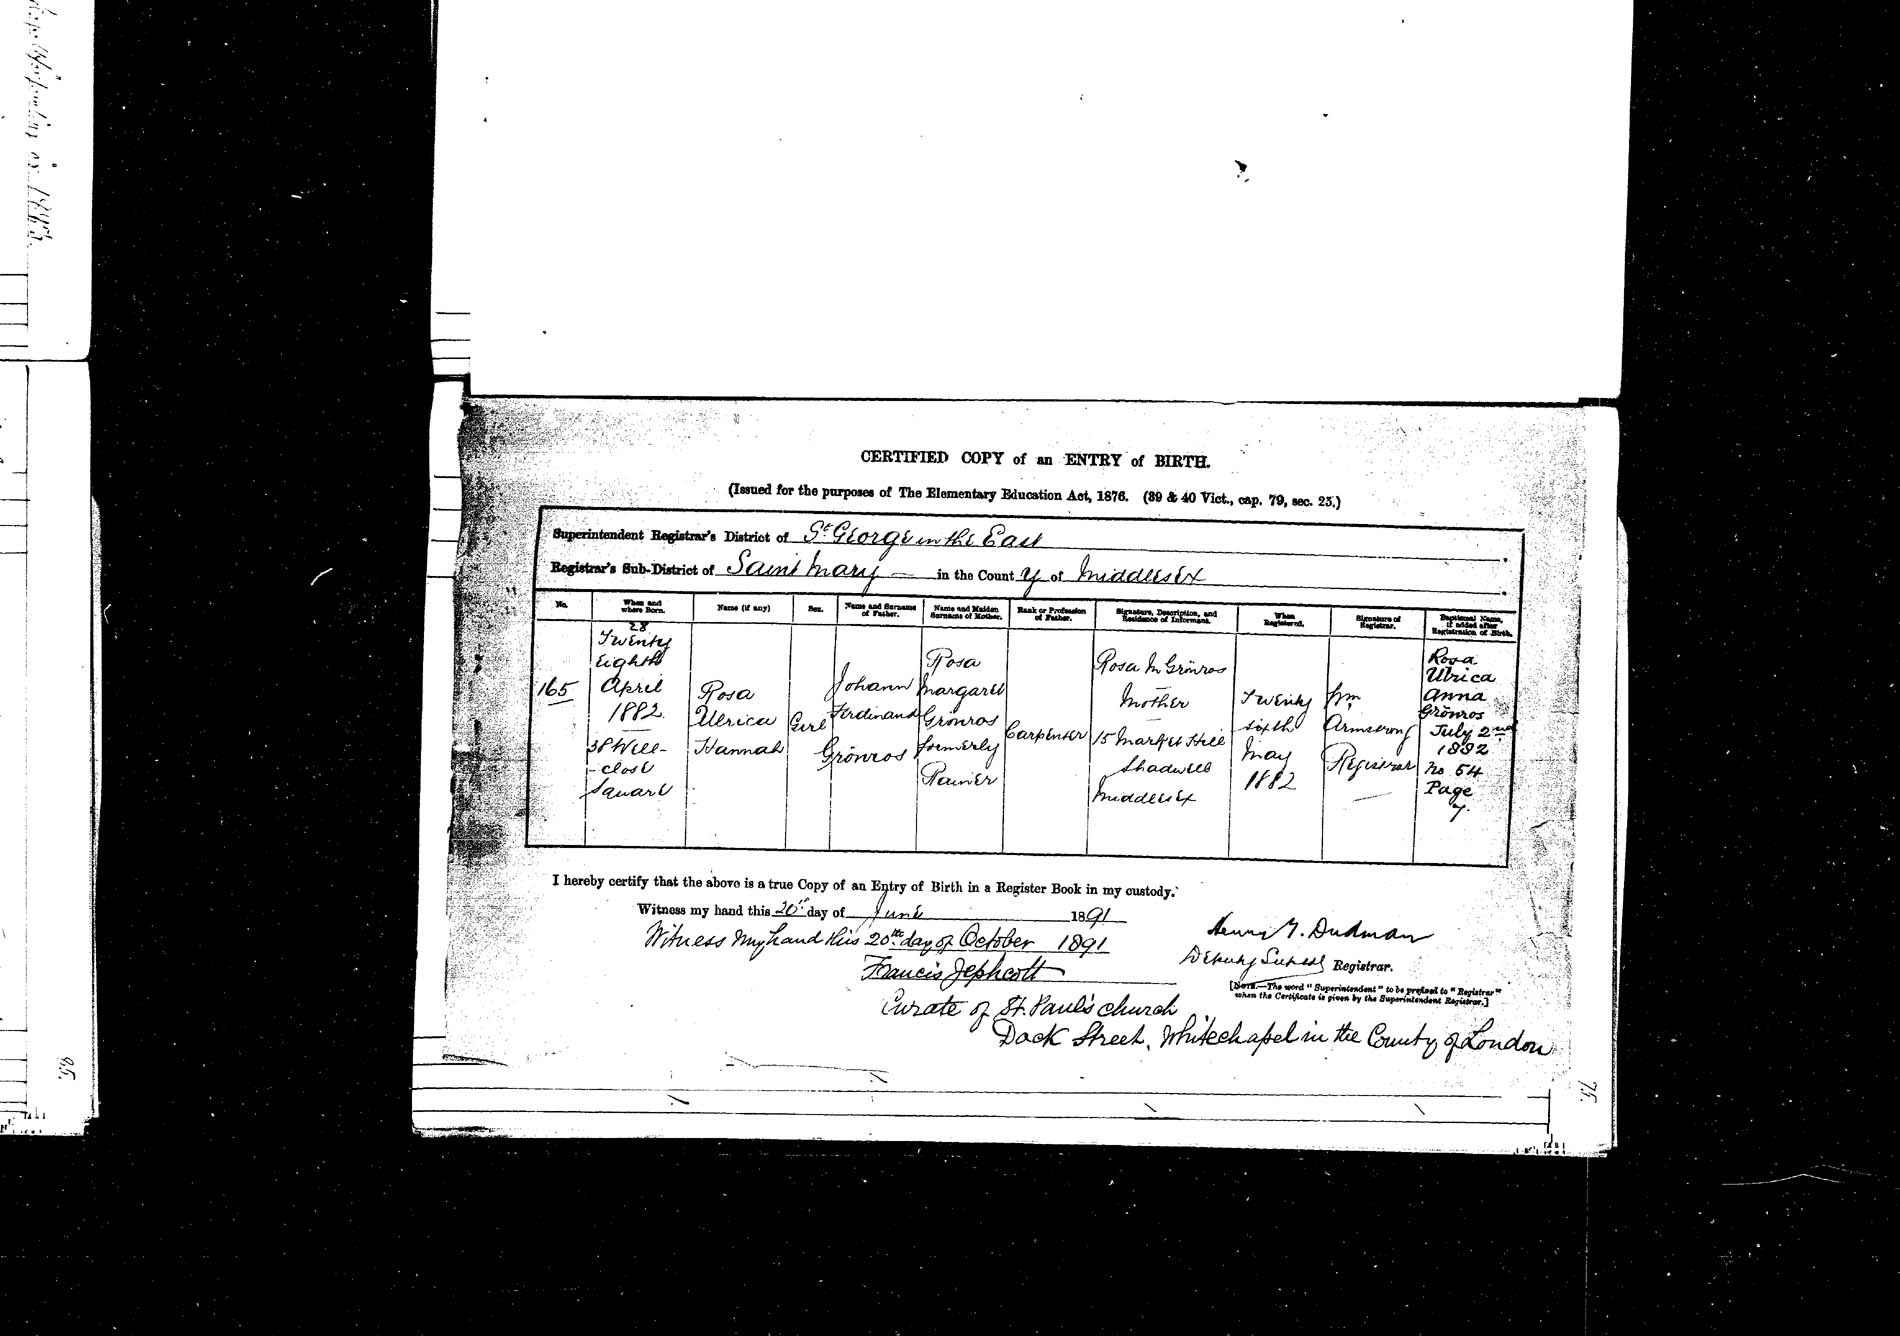 CERTIFIED COPY of an ENTRY of BIRTH.
(Issued for the purposes of The Elementary Education Act, 1876. (39 & 40 Vict., cap. 79, sec. 25.)
Superintendent Registrar's District of St George in the East
Registrar's Sub-District of Saint Mary — in the County of Middlesex
No.
When and
where Born.
Name (if any)
Sex.
Name and Surname
of Father.
Name and Maiden
Surname of Mother.
Rank or Profession
of Father.
Signature, Description, and
Residence of Informant.
When
Registered.
Signature of
Registrar.
Baptismal Name,
if added after
Registration of Birth.
165
28
Twenty
Eighth
April
1882
38 Well-
-close
Square
Rosa
Ulrica
Hannah
Girl
Johann
Ferdinand
Grönros
Rosa
Margaret
Grönros
formerly
Rainer
Carpenter
Rosa M Grönros
Mother
15 Market Hill
Shadwell
Middlesex
Twenty
sixth
May
1882
Wm
Armstrong
Registrar
Rosa
Ulrica
Anna
Grönros
July 2nd
1882
No 54
Page
7.
I hereby certify that the above is a true Copy of an Entry of Birth in a Register Book in my custody.
Witness my hand this 20th day of June 1891
Witness my hand this 20th day of October 1891
Henry T. Dudman
Deputy Superd Registrar.
Francis Jephcott
[NOTE.—The word "Superintendent" to be prefixed to "Registrar"
when the Certificate is given by the Superintendent Registrar.]
Curate of St. Paul's church
Dock Street, Whitechapel in the County of London
75.
85.